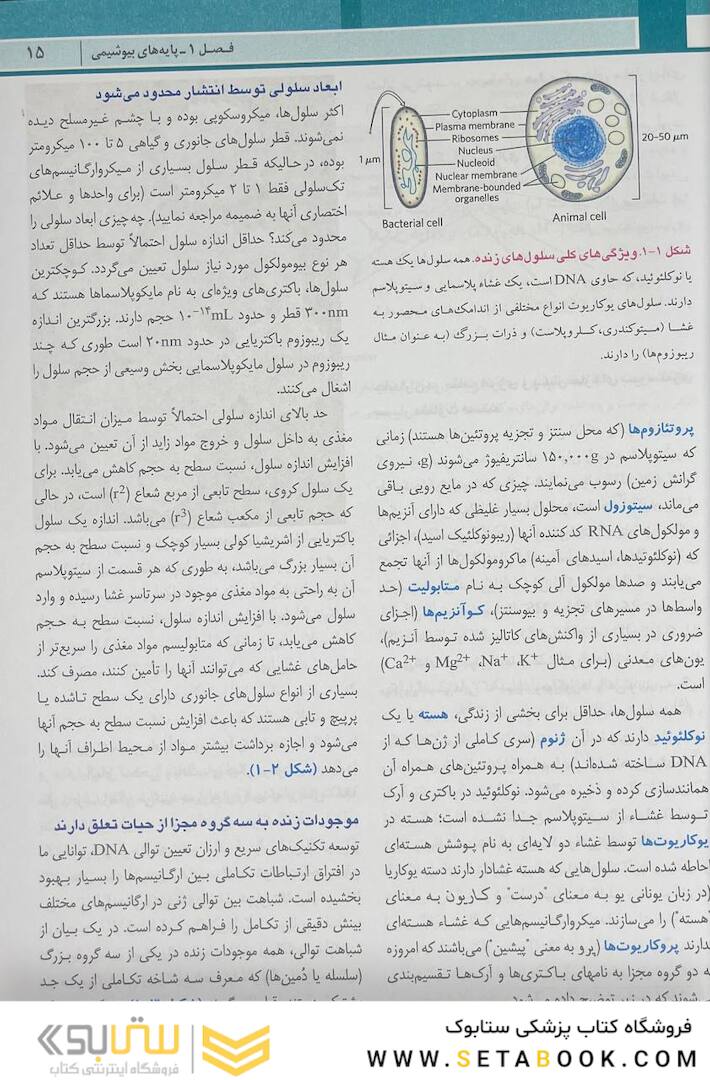 فصل ۱ ـ پایه‌های بیوشیمی | ۱۵
Cytoplasm
Plasma membrane
Ribosomes
Nucleus
Nucleoid
Nuclear membrane
Membrane-bound
organelles
1 μm
20-50 μm
Bacterial cell
Animal cell
شکل ۱-۱. ویژگی‌های کلی سلول‌های زنده. همه سلول‌ها یک هسته
یا نوکلئوئید، که حاوی DNA است، یک غشاء پلاسمایی و سیتوپلاسم
دارند. سلول‌های یوکاریوت انواع مختلفی از اندامک‌های محصور به
غشا (میتوکندری، کلروپلاست) و ذرات بزرگ (به عنوان مثال
ریبوزوم‌ها) را دارند.
پروتئازوم‌ها (که محل سنتز و تجزیه پروتئین‌ها هستند) زمانی
که سیتوپلاسم در ۱۵۰,۰۰۰g سانتریفیوژ می‌شوند (g، نیروی
گرانش زمین) رسوب می‌نمایند. چیزی که در مایع رویی باقی
می‌ماند، سیتوزول است، محلول بسیار غلیظی که دارای آنزیم‌ها
و مولکول‌های RNA کد کننده آنها (ریبونوکلئیک اسید)، اجزائی
که (نوکلئوتیدها، اسیدهای آمینه) ماکرومولکول‌ها از آنها تجمع
می‌یابند و صدها مولکول آلی کوچک به نام متابولیت (حد
واسط‌ها در مسیرهای تجزیه و بیوسنتز)، کوآنزیم‌ها (اجزای
ضروری در بسیاری از واکنش‌های کاتالیز شده توسط آنزیم)،
یون‌های معدنی (برای مثال K⁺، Na⁺، Mg²⁺ و Ca²⁺)
است.
همه سلول‌ها، حداقل برای بخشی از زندگی، هسته یا یک
نوکلئوئید دارند که در آن ژنوم (سری کاملی از ژن‌ها که از
DNA ساخته شده‌اند) به همراه پروتئین‌های همراه آن
همانندسازی کرده و ذخیره می‌شود. نوکلئوئید در باکتری و آرک
توسط غشاء از سیتوپلاسم جدا نشده است؛ هسته در
یوکاریوت‌ها توسط غشاء دو لایه‌ای به نام پوشش هسته‌ای
احاطه شده است. سلول‌هایی که هسته غشادار دارند دسته یوکاریا
(در زبان یونانی یو به معنای "درست" و کاریون به معنای
"هسته") را می‌سازند. میکروارگانیسم‌هایی که غشاء هسته‌ای
ندارند پروکاریوت‌ها (پرو به معنی "پیشین") می‌باشند که امروزه
به دو گروه مجزا به نامهای باکتری‌ها و آرک‌ها تقسیم‌بندی
می‌شوند که در زیر توضیح داده می‌شود.
ابعاد سلولی توسط انتشار محدود می‌شود
اکثر سلول‌ها، میکروسکوپی بوده و با چشم غیرمسلح دیده
نمی‌شوند. قطر سلول‌های جانوری و گیاهی ۵ تا ۱۰۰ میکرومتر
بوده، در حالیکه قطر سلول بسیاری از میکروارگانیسم‌های
تک‌سلولی فقط ۱ تا ۲ میکرومتر است (برای واحدها و علائم
اختصاری آنها به ضمیمه مراجعه نمایید). چه چیزی ابعاد سلولی را
محدود می‌کند؟ حداقل اندازه سلول احتمالاً توسط حداقل تعداد
هر نوع بیومولکول مورد نیاز سلول تعیین می‌گردد. کوچکترین
سلول‌ها، باکتری‌های ویژه‌ای به نام مایکوپلاسماها هستند که
۳۰۰nm قطر و حدود ۱۰⁻¹⁴mL حجم دارند. بزرگترین اندازه
یک ریبوزوم باکتریایی در حدود ۲۰nm است طوری که چند
ریبوزوم در سلول مایکوپلاسمایی بخش وسیعی از حجم سلول را
اشغال می‌کنند.
حد بالای اندازه سلولی احتمالاً توسط میزان انتقال مواد
مغذی به داخل سلول و خروج مواد زاید از آن تعیین می‌شود. با
افزایش اندازه سلول، نسبت سطح به حجم کاهش می‌یابد. برای
یک سلول کروی، سطح تابعی از مربع شعاع (r²) است، در حالی
که حجم تابعی از مکعب شعاع (r³) می‌باشد. اندازه یک سلول
باکتریایی از اشریشیا کولی بسیار کوچک و نسبت سطح به حجم
آن بسیار بزرگ می‌باشد، به طوری که هر قسمت از سیتوپلاسم
آن به راحتی به مواد مغذی موجود در سرتاسر غشا رسیده و وارد
سلول می‌شود. با افزایش اندازه سلول، نسبت سطح به حجم
کاهش می‌یابد، تا زمانی که متابولیسم مواد مغذی را سریع‌تر از
حامل‌های غشایی که می‌توانند آنها را تأمین کنند، مصرف کند.
بسیاری از انواع سلول‌های جانوری دارای یک سطح تاشده یا
پرپیچ و تابی هستند که باعث افزایش نسبت سطح به حجم آنها
می‌شود و اجازه برداشت بیشتر مواد از محیط اطراف آنها را
می‌دهد (شکل ۲-۱).
موجودات زنده به سه گروه مجزا از حیات تعلق دارند
توسعه تکنیک‌های سریع و ارزان تعیین توالی DNA، توانایی ما
در افتراق ارتباطات تکاملی بین ارگانیسم‌ها را بسیار بهبود
بخشیده است. شباهت بین توالی ژنی در ارگانیسم‌های مختلف
بینش دقیقی از تکامل را فراهم کرده است. در یک بیان از
شباهت توالی، همه موجودات زنده در یکی از سه گروه بزرگ
(سلسله یا دُمین‌ها) که معرف سه شاخه تکاملی از یک جد
فروشگاه کتاب پزشکی ستابوک
WWW.SETABOOK.COM
ستابوک
فروشگاه اینترنتی کتاب